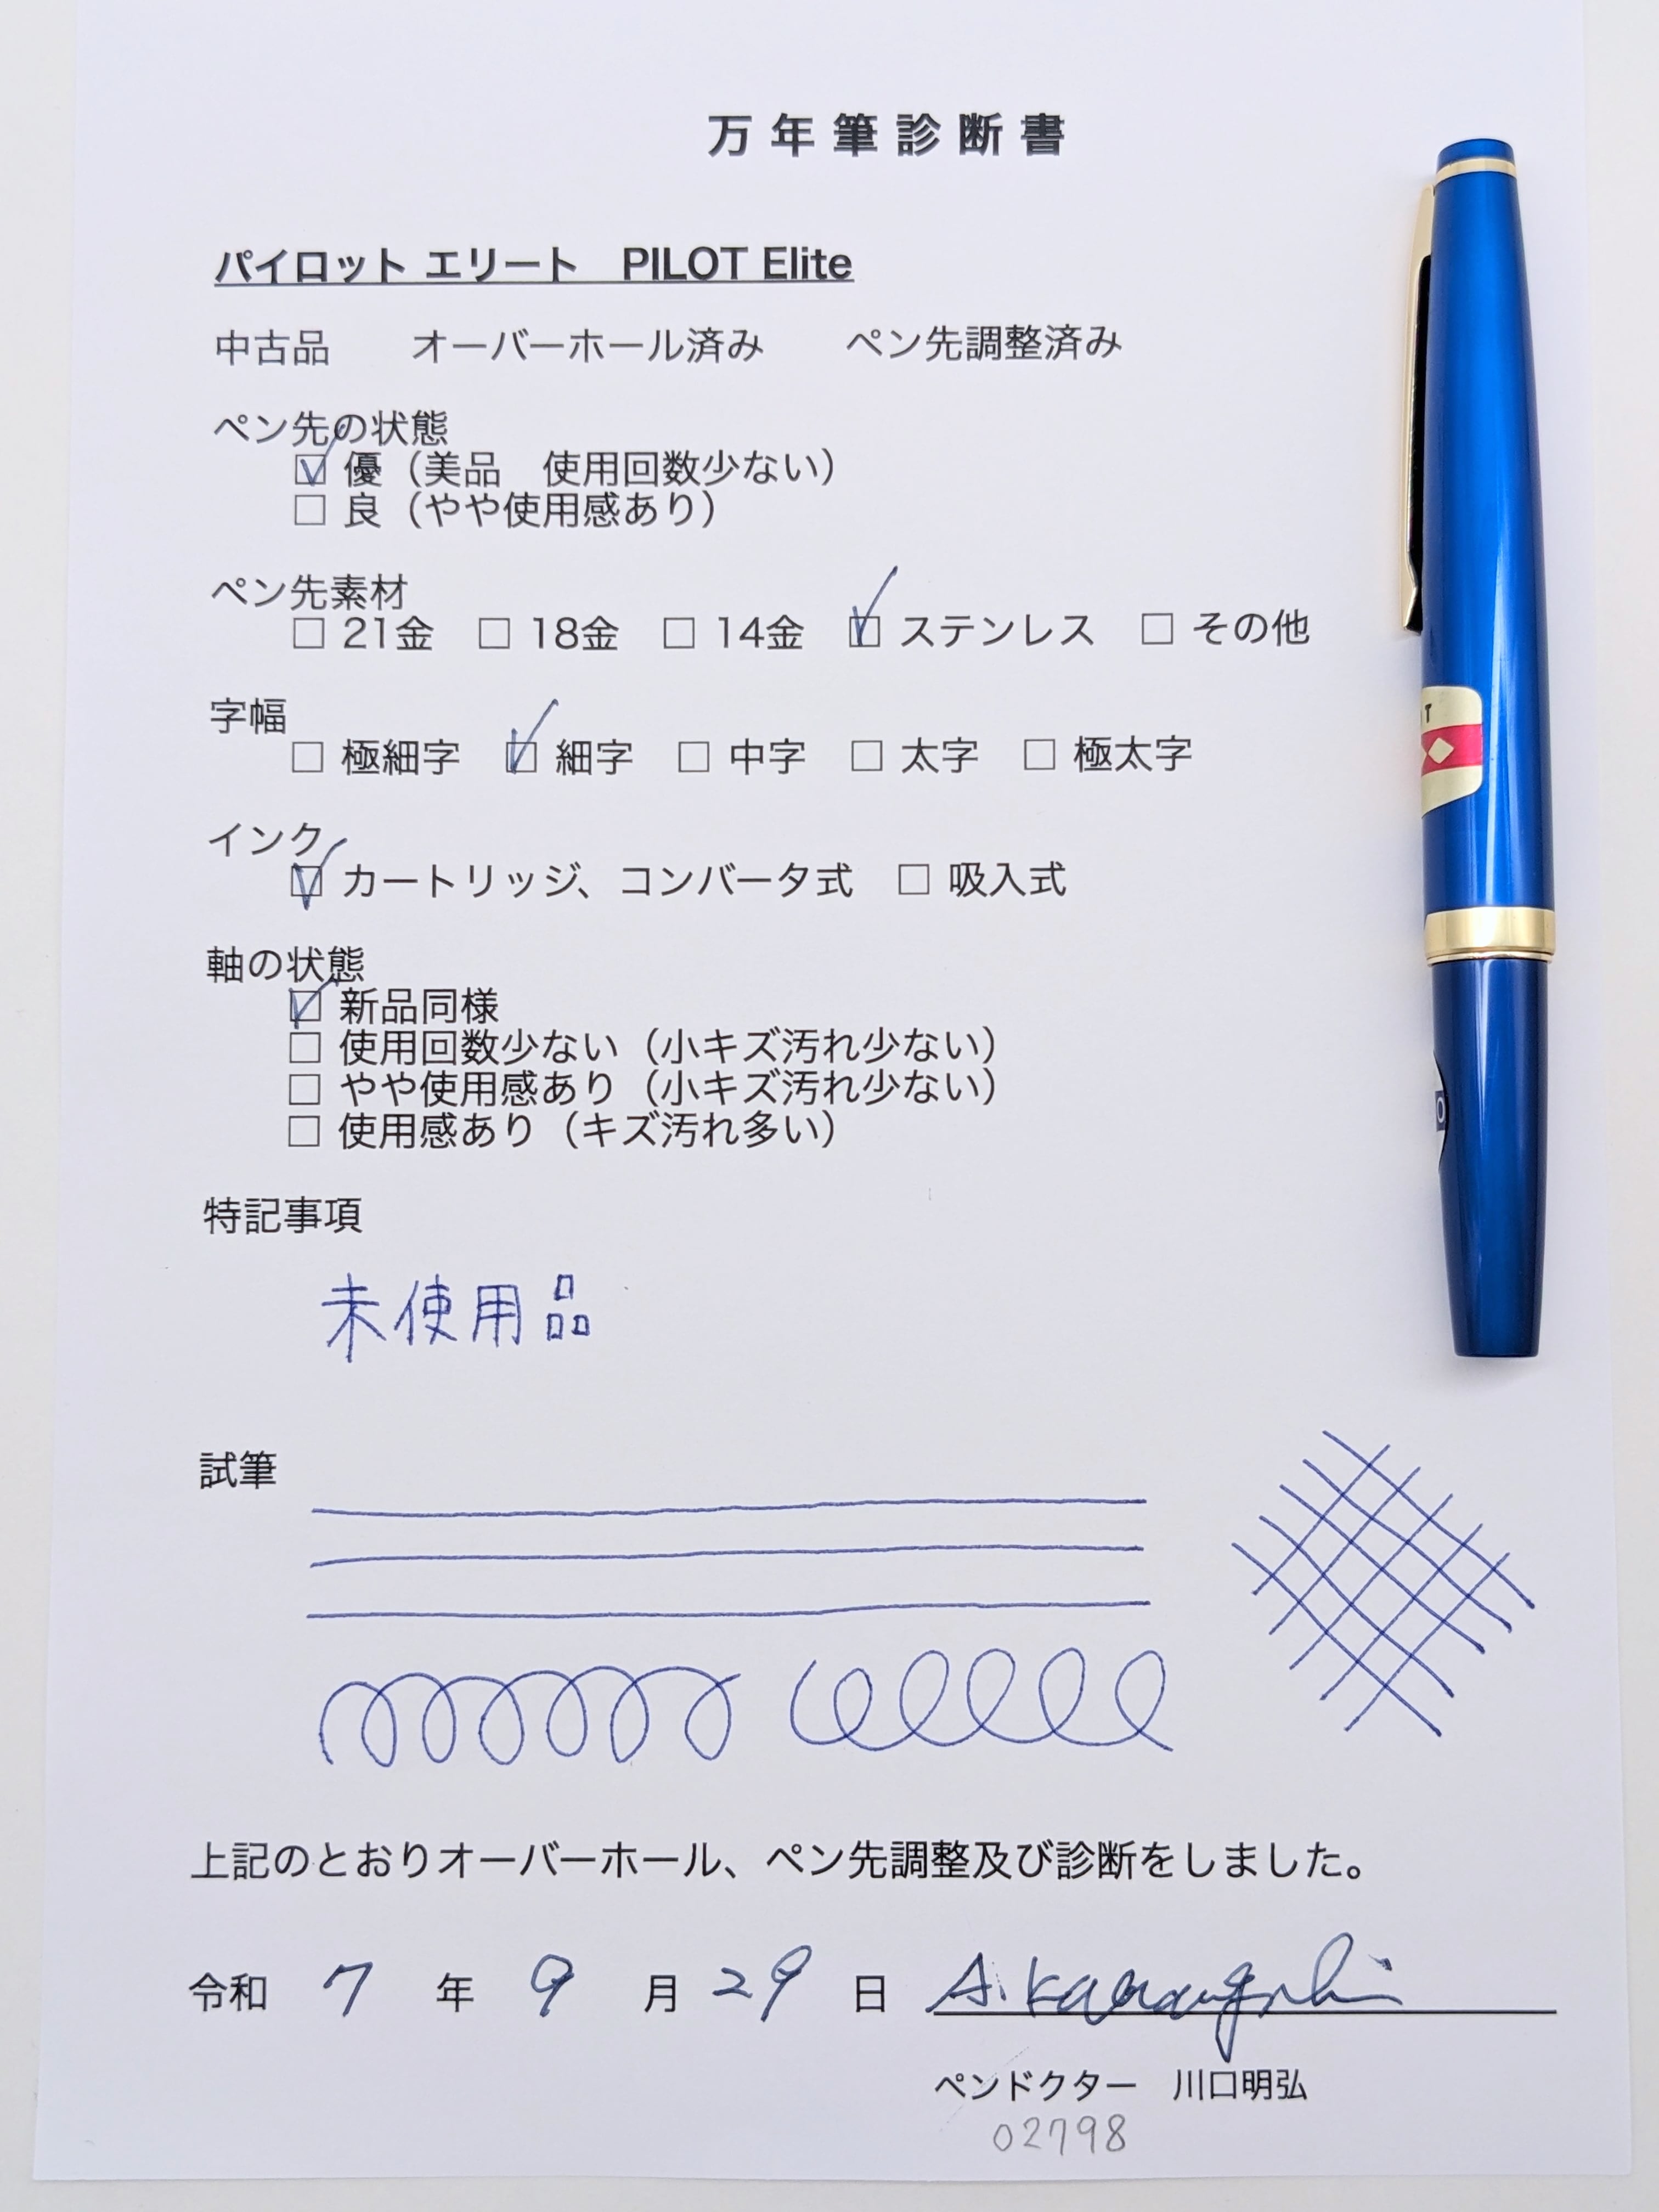 万年筆診断書
パイロット エリート　PILOT Elite
中古品　　オーバーホール済み　　ペン先調整済み
ペン先の状態
☑ 優（美品　使用回数少ない）
☐ 良（やや使用感あり）
ペン先素材
☐ 21金　☐ 18金　☐ 14金　☑ ステンレス　☐ その他
字幅
☐ 極細字　☑ 細字　☐ 中字　☐ 太字　☐ 極太字
インク
☑ カートリッジ、コンバータ式　☐ 吸入式
軸の状態
☑ 新品同様
☐ 使用回数少ない（小キズ汚れ少ない）
☐ やや使用感あり（小キズ汚れ少ない）
☐ 使用感あり（キズ汚れ多い）
特記事項
未使用品
試筆
上記のとおりオーバーホール、ペン先調整及び診断をしました。
令和 7 年 9 月 29 日 A. Kawaguchi
ペンドクター　川口明弘
02798
T
O